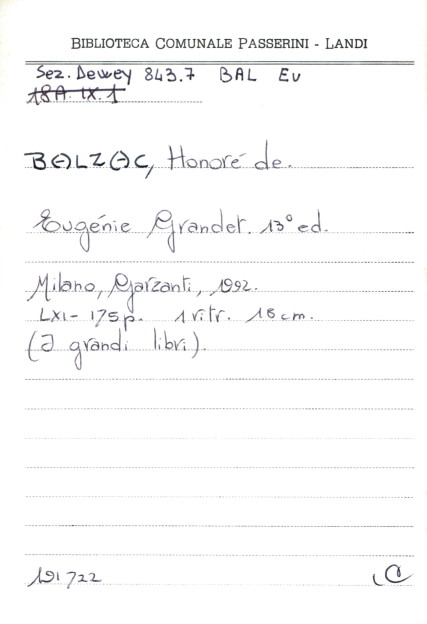 BIBLIOTECA COMUNALE PASSERINI - LANDI
Sez. Dewey 843.7 BAL Eu
18A. IX. 1
BALZAC, Honoré de.
Eugénie Grandet. 13° ed.
Milano, Garzanti, 1992.
LXI- 175p. 1 ritr. 18 cm.
(I grandi libri).
191722